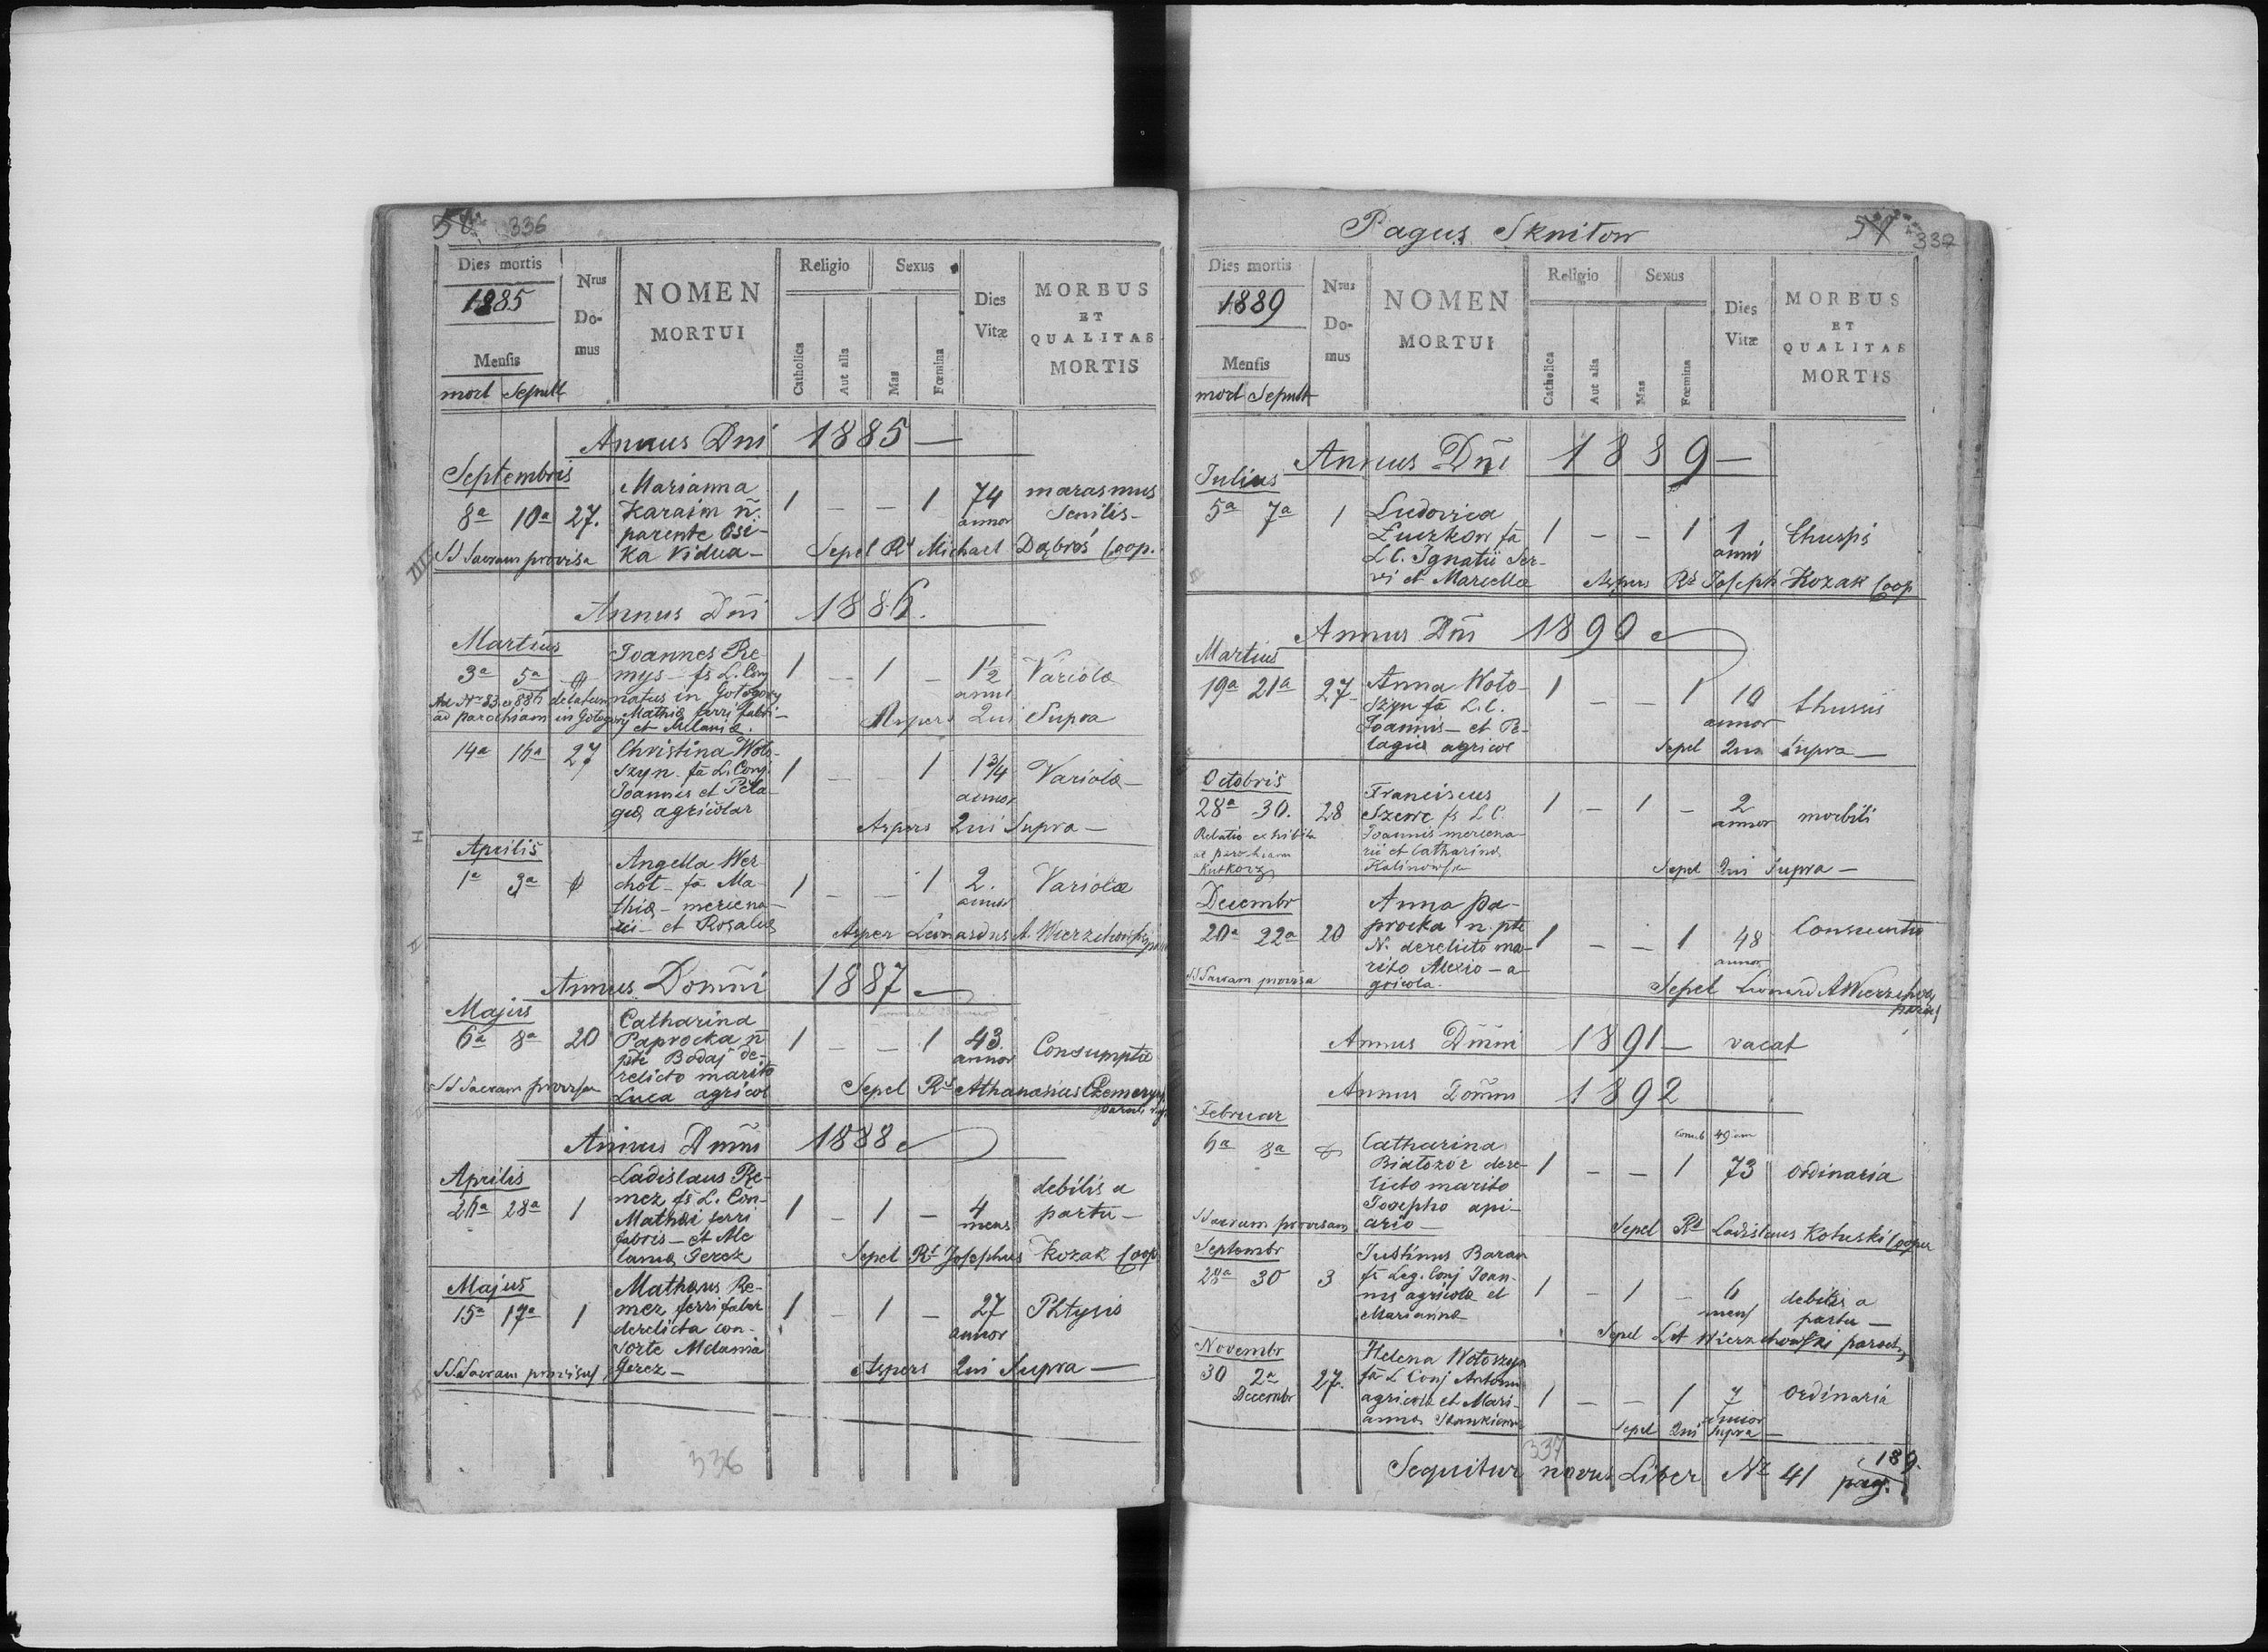 336
Dies mortis
1885
Mensis
mort Sepult
Nrus
Do-
mus
NOMEN
MORTUI
Religio
Catholica
Aut alia
Sexus
Mas
Fœmina
Dies
Vitæ
MORBUS
ET
QUALITAS
MORTIS
Annus Dni 1885 —
Septembris
8a 10a 27.
Marianna
Karaim ñ.
parente Osi-
ka Vidua —
1 — — 1 74
annor
marasmus
Senilis —
SS Sacram provisa
Sepel Rd Michael Dąbroś Coop.
Annus Dni 1886.
Martius
3a 5a
Joannes Re-
mys — fs L. Conj
natus in Gologory
Mathiæ ferri fabri —
et Melaniæ.
1 — 1 — 1½
anni
Variolæ
ad parochiam in Gologory
Aspers Qui Supra
14a 16a 27
Christina Woło-
szyn fa L. Conj.
Joannes et Pela-
giæ agricolar
1 — — 1 1¾
annor
Variolæ —
Aspers Qui Supra —
Aprilis
1a 3a
Angella Wer
chot — fa Ma-
thiæ — mercena-
rii — et Rosaliæ
1 — — 1 2.
annor
Variolæ
Asper Leonardus A. Wierzchowski
Annus Domini 1887
Majus
6a 8a 20
Catharina
Paprocka ñ
pte Bodaj de-
relicto marito
Luca agricol
1 — — 1 43.
annor
Consumptio
SS Sacram provisa
Sepel Rd Athanasius
Annus Dmni 1888
Aprilis
26a 28a 1
Ladislaus Re-
mez fs L. Con-
Mathæi ferri
fabris — et Me
laniæ Gerez
1 — 1 — 4
mens
debilis a
partu —
Sepel Rd Josephus Kozak Coop
Majus
15a 17a 1
Mathæus Re-
mez ferri faber
derelicta con-
sorte Melania
Gerez —
1 — 1 — 27
annor
Phtysis
SS. Sacram provisus
Aspers Qui Supra —
336
Pagus Sknitow
337
Dies mortis
1889
Mensis
mort Sepult
Nrus
Do-
mus
NOMEN
MORTUI
Religio
Catholica
Aut alia
Sexus
Mas
Fœmina
Dies
Vitæ
MORBUS
ET
QUALITAS
MORTIS
Annus Dni 1889 —
Julius
5a 7a 1
Ludovica
Łuczkow fa
L C. Ignatii Ser-
vi et Marcellæ
1 — — 1 1
anni
thussis
Aspers Rd Joseph Kozak Coop
Annus Dni 1890
Martius
19a 21a 27
Anna Woło-
szyn fa L. C.
Joannis — et Pe-
lagiæ agricol
1 — — 1 10
annor
thussis
Sepel Qui Supra —
Octobris
28a 30. 28
Franciscus
Szewc fs L C.
Joannis mercena-
rii et Catharinæ
Kalinowska
1 — 1 — 2
annor
morbili
Relatio exhibita
ad parochiam
Kutkorz
Sepel Qui Supra —
Decembr
20a 22a 20
Anna Pa-
procka n. pte
N. derelicto ma-
rito Alexio — a-
gricola.
1 — — 1 48
annor
SS Sacram provisa
Sepel Leonard A Wierzchows
Annus Dmni 1891 — vacat
Annus Domni 1892
Februar
6a 8a
Catharina
Białozor dere-
licto marito
Josepho api-
ario —
1 — — 1 73
ordinaria
Sepel Rd Ladislaus Kotuski Cooper
Septembr
28a 30 3
Justinus Baran
fs Leg. Conj Joan-
nis agricolæ et
Mariannæ
1 — 1 — 6
mens
debilis a
partu —
Sepel L A Wierzchowski paroch
Novembr
30 2a 27.
Decembr
Helena Wołoszyn
fa L Conj Antonii
agricolæ et Mari-
annæ Stankiewicz
1 — — 1 7
annor
ordinaria
Sepel Qui Supra —
337
189.
Sequitur novus Liber Nr 41 pag.